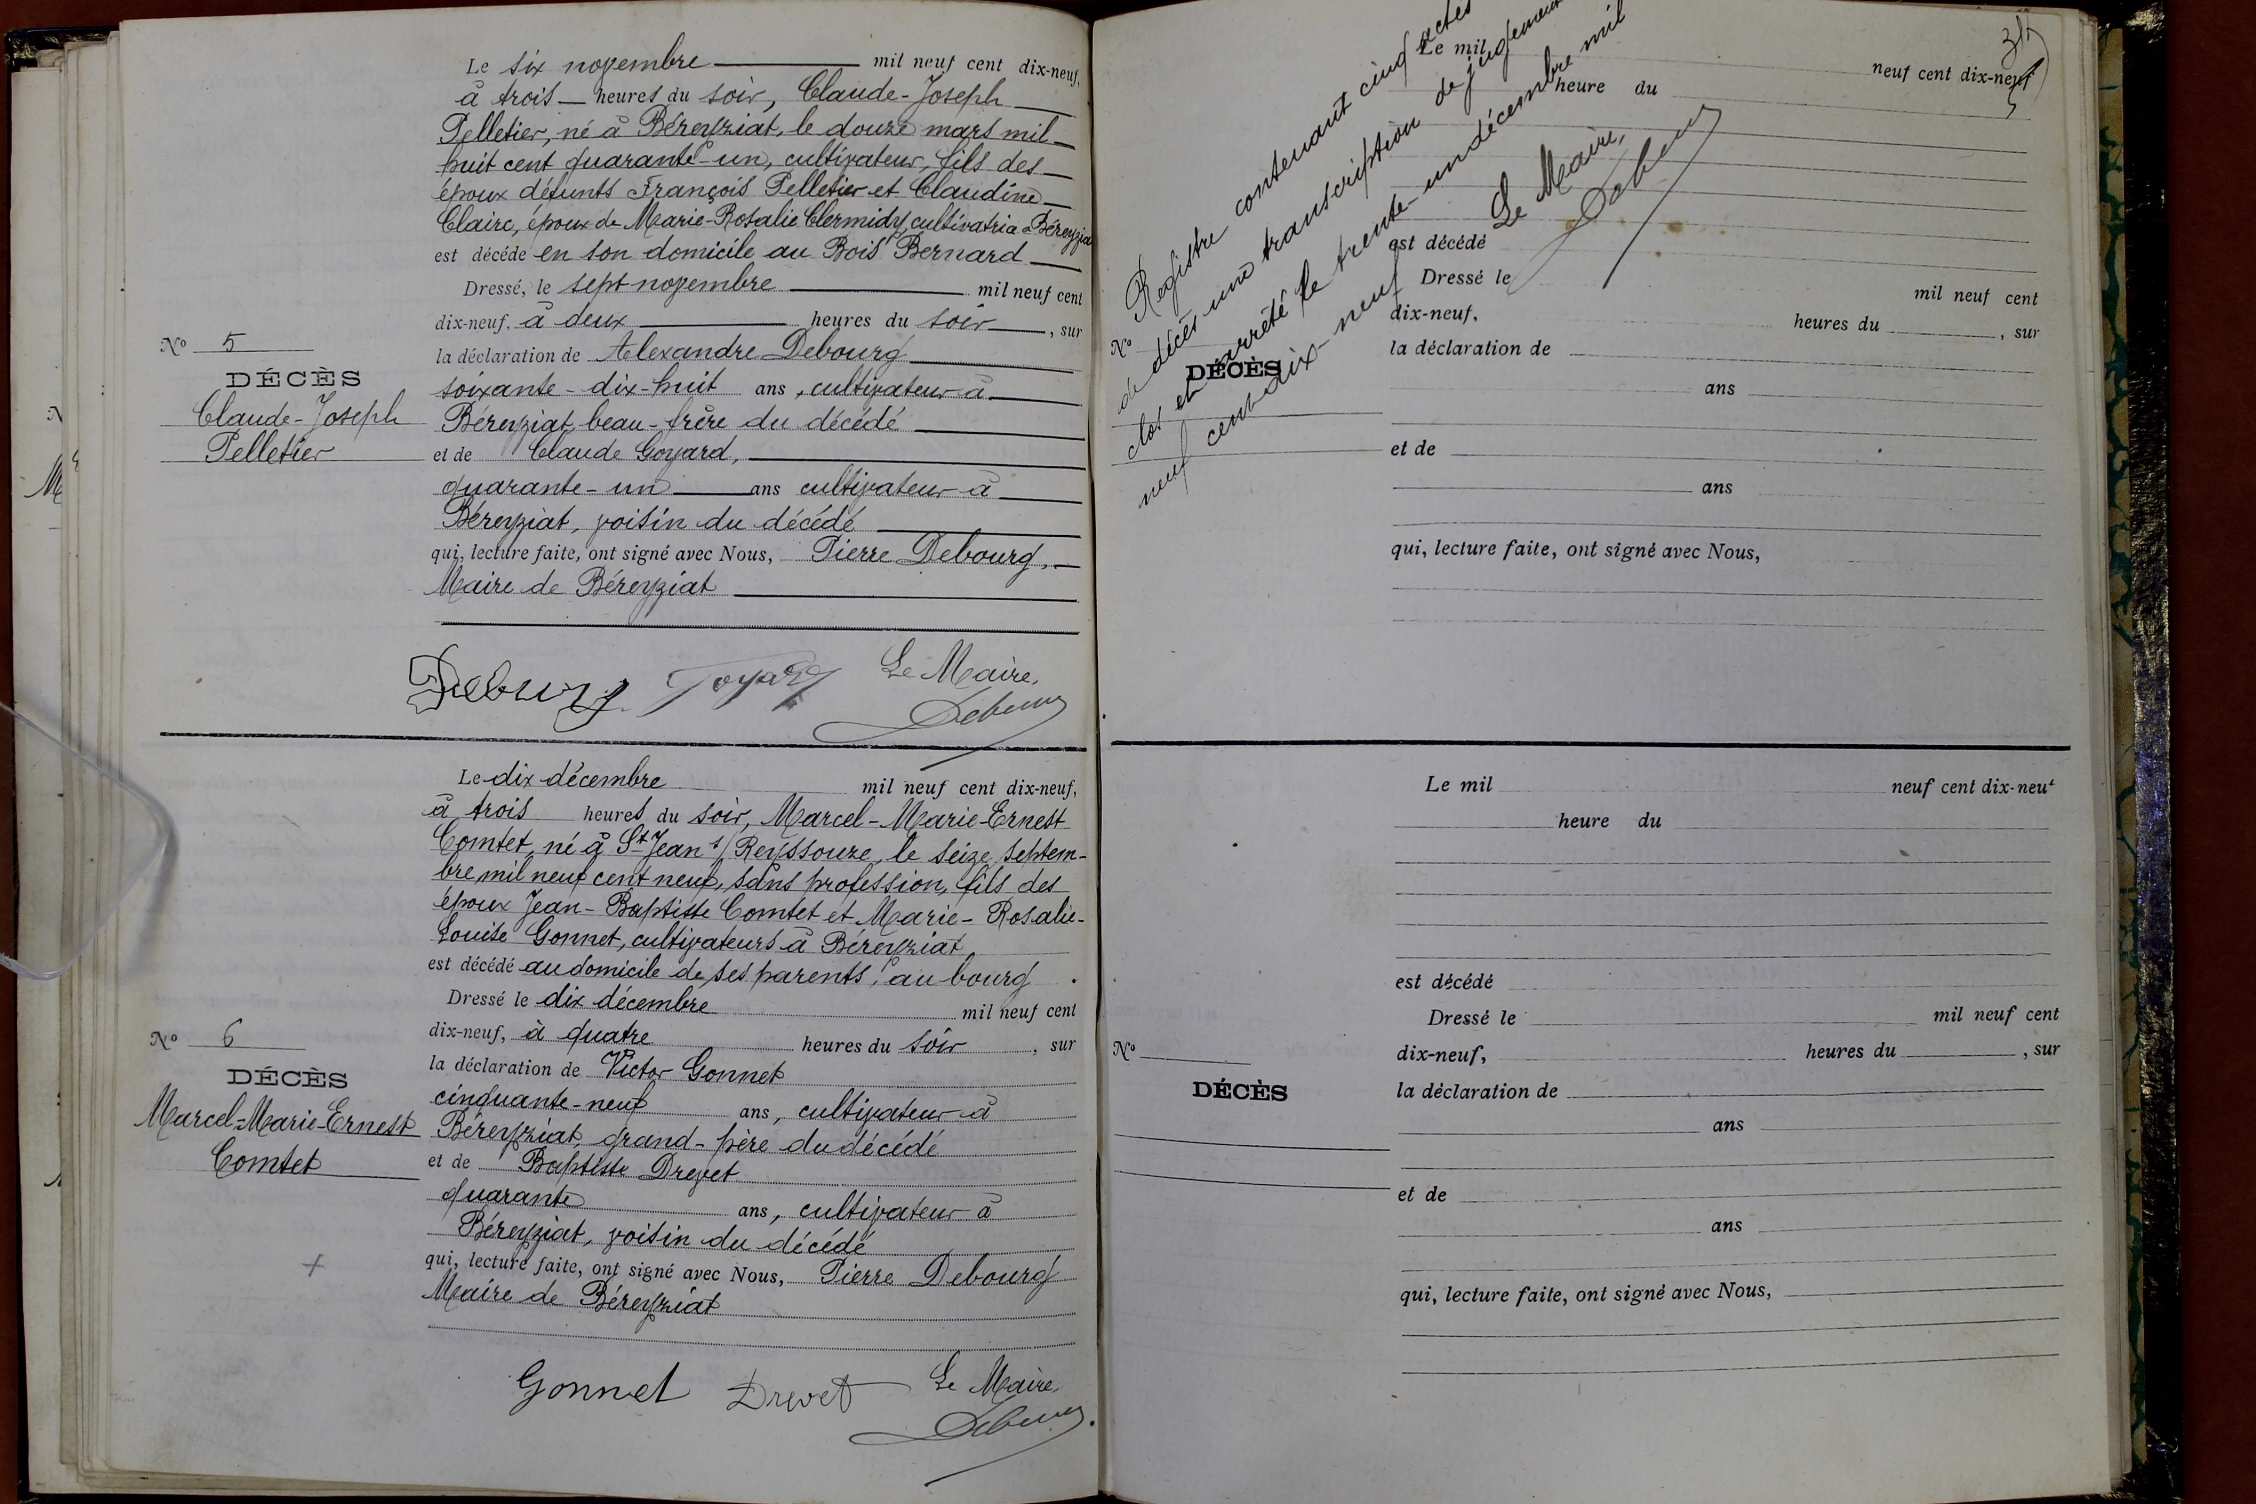 Le six novembre mil neuf cent dix-neuf,
à trois heures du soir, Claude-Joseph
Pelletier, né à Béreyziat, le douze mars mil
huit cent quarante-un, cultivateur, fils des
époux défunts François Pelletier et Claudine
Claire, époux de Marie-Rosalie Clermidy, cultivatrice à Béreyziat
est décédé en son domicile au Bois Bernard
Dressé, le sept novembre mil neuf cent
dix-neuf, à deux heures du soir, sur
la déclaration de Alexandre Debourg
soixante-dix-huit ans, cultivateur à
Béreyziat, beau-frère du décédé
et de Claude Goyard,
quarante-un ans cultivateur à
Béreyziat, voisin du décédé
qui, lecture faite, ont signé avec Nous, Pierre Debourg,
Maire de Béreyziat
Nº 5
DÉCÈS
Claude-Joseph
Pelletier
Debourg Goyard Le Maire,
Debourg
Le dix décembre mil neuf cent dix-neuf,
à trois heures du soir, Marcel-Marie-Ernest
Comtet, né à St Jean s/ Reyssouze, le seize septem-
bre mil neuf cent neuf, sans profession, fils des
époux Jean-Baptiste Comtet et Marie-Rosalie-
Louise Gonnet, cultivateurs à Béreyziat
est décédé au domicile de ses parents, au bourg
Dressé le dix décembre mil neuf cent
dix-neuf, à quatre heures du soir, sur
la déclaration de Victor Gonnet
cinquante-neuf ans, cultivateur à
Béreyziat, grand-père du décédé
et de Baptiste Drevet
quarante ans, cultivateur à
Béreyziat, voisin du décédé
qui, lecture faite, ont signé avec Nous, Pierre Debourg
Maire de Béreyziat
Nº 6
DÉCÈS
Marcel-Marie-Ernest
Comtet
Gonnet Drevet Le Maire,
Debourg
Registre contenant cinq actes
de décès une transcription de jugement
clos et arrêté le trente-un décembre mil
neuf cent dix-neuf
Le Maire,
Debourg
Le mil neuf cent dix-neuf
heure du
est décédé
Dressé le mil neuf cent
dix-neuf, heures du , sur
la déclaration de
ans
et de
ans
qui, lecture faite, ont signé avec Nous,
Nº
DÉCÈS
Le mil neuf cent dix-neuf
heure du
est décédé
Dressé le mil neuf cent
dix-neuf, heures du , sur
la déclaration de
ans
et de
ans
qui, lecture faite, ont signé avec Nous,
Nº
DÉCÈS